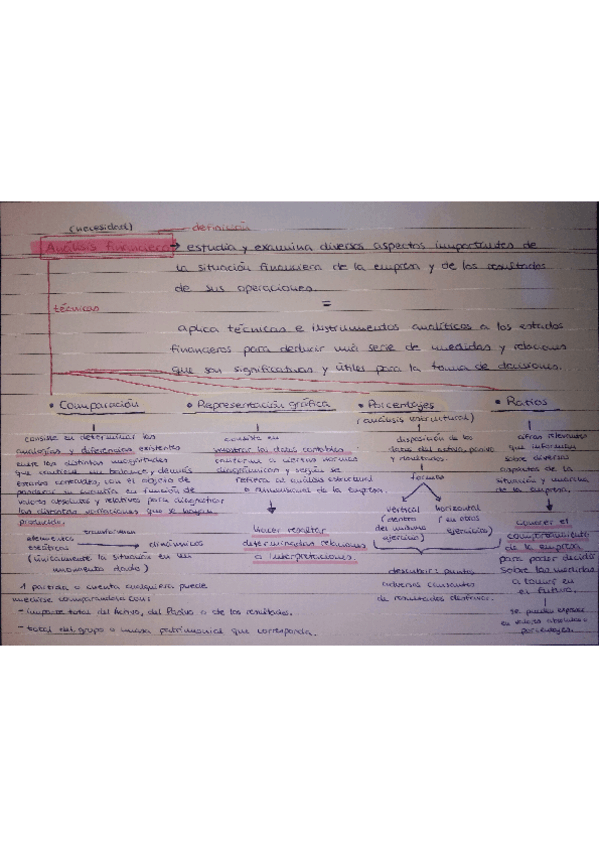 (necesidad) definición
Análisis financiero → estudia y examina diversos aspectos importantes de
la situación financiera de la empresa y de los resultados
de sus operaciones.
=
técnicas
aplica técnicas e instrumentos analíticos a los estados
financieros para deducir una serie de medidas y relaciones
que son significativas y útiles para la toma de decisiones.
• Comparación
consiste en determinar las
analogías y diferencias existentes
entre las distintas magnitudes
que contiene un balance y demás
estados contables, con el objeto de
ponderar su cuantía en función de
valores absolutos y relativos para diagnosticar
las distintas variaciones que se hayan
producido.
elementos transforman
estáticos → dinámicos
(únicamente la situación en un
momento dado)
1 partida o cuenta cualquiera puede
medirse comparándola con:
- importe total del Activo, del Pasivo o de los resultados.
- total del grupo o masa patrimonial que corresponda.
• Representación gráfica
consiste en
mostrar los datos contables
conforme a ciertas normas
y según se
refiera al análisis estructural
o de la empresa.
Hacer resaltar
determinadas relaciones
o interpretaciones.
• Porcentajes
(análisis estructural)
disposición de los
datos del activo, pasivo
y resultados.
formato
vertical
(dentro
del mismo
ejercicio)
horizontal
(en otros
ejercicios)
descubrir puntos
adversos causantes
de resultados
• Ratios
cifras relevantes
que informan
sobre diversos
aspectos de la
situación y marcha
de la empresa.
conocer el
comportamiento
de la empresa
para poder decidir
sobre las medidas
a tomar en
el futuro.
se pueden expresar
en valores absolutos o
porcentajes.